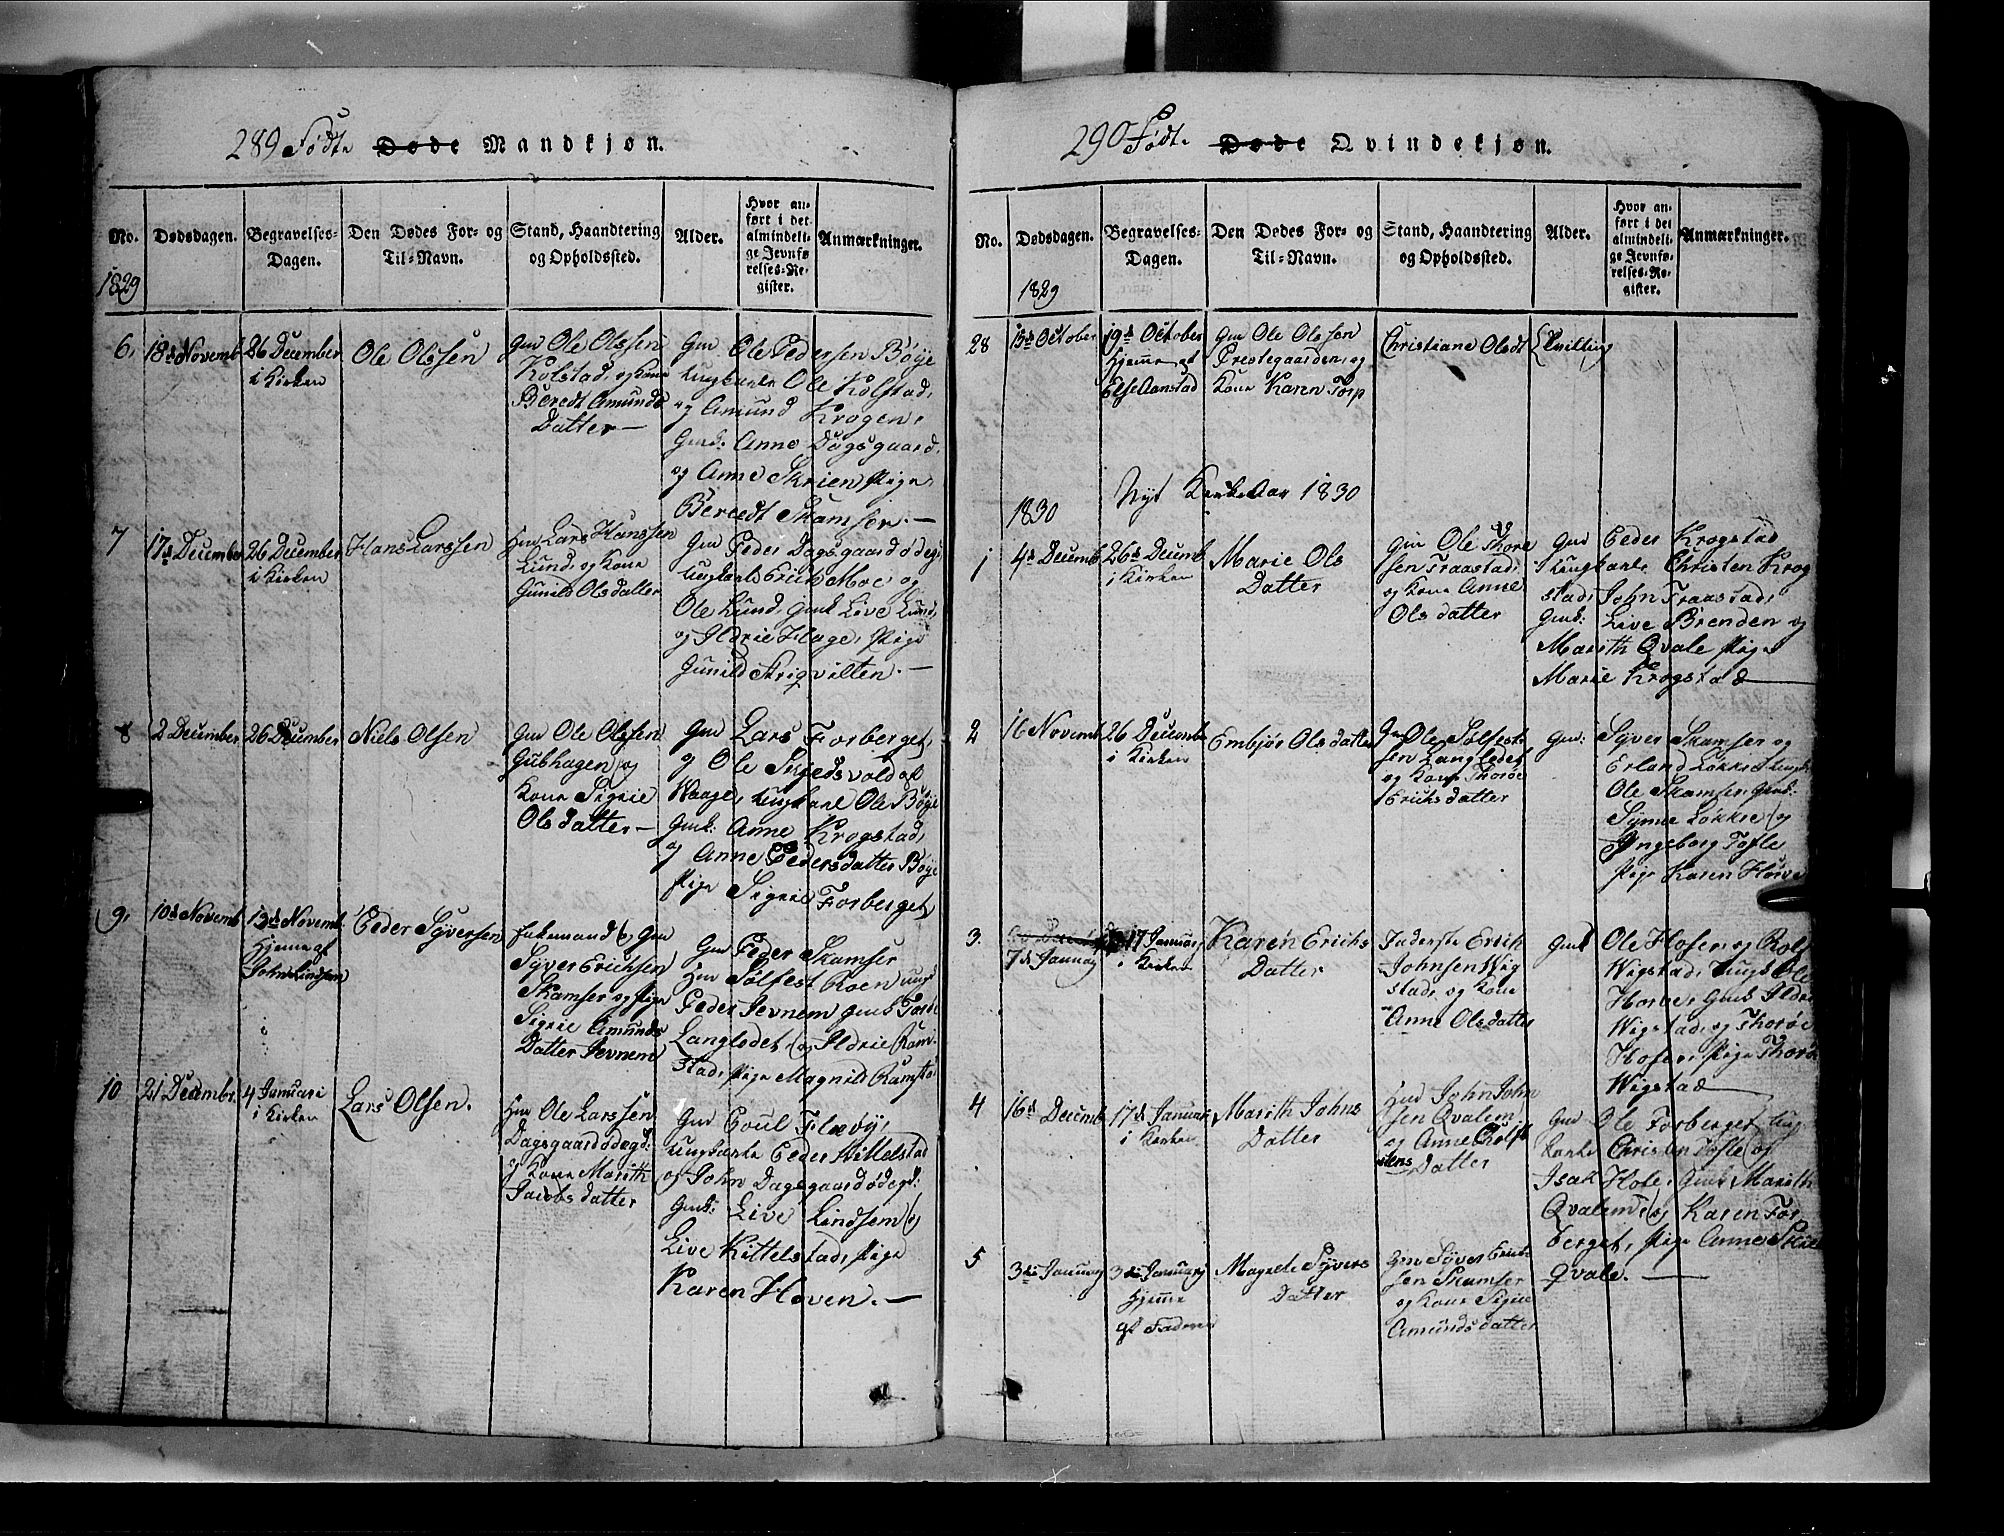 289 Födte Døde Mandkjøn.
No.
Dødsdagen.
Begravelses-
Dagen.
Den Dødes For- og
Til-Navn.
Stand, Haandtering
og Opholdssted.
Alder.
Hvor an-
ført i det
almindeli-
ge Jevnfø-
relses-Re-
gister.
Anmærkninger.
1829
6,
18de Novemb
26 December
i Kirken
Ole Olssen
Gm Ole Olssen
Kolstad, og Kone
Beredt Amunds
Datter —
Gm Ole Pedersen Böye
Ungkarle Ole Kolstad,
og Amund Krogen,
Gmk: Anne Dagsgaard,
og Anne Skrien Pige
Beredt Skamser. —
7
17de December
26 December
i Kirken
Hans Larssen
Hm Lars Hanssen
Lund, og Kone
Gunild Olsdatter
Gm Peder Dagsgaardødeg:
Ungkarls Erich Moe og
Ole Lund, Gmk Live Lund,
og Ildrie Hage, Pige
Gunild
8
2 December
26 December
Niels Olsen
Gm Ole Olssen
Gubhagen og
Kone Sigrie
Olsdatter —
Gm Lars Forberget,
og Ole af
Waage, Ungkarl Ole Böye
Gmk: Anne Krogstad,
og Anne Pedersdatter Böye
Pige Sigrie Forberget,
9,
10de Novemb
13de Novemb:
Hjemme af
John Lindsøe
Peder Syversen
og Gm
Syver Erichsen
Skamser og Pige
Sigrie Amunds
Datter Jevnem
Gm Peder Skamser
Hm Sölfest Roen ung:
Peder Jevnem Gmk
Langledet, og Ildrie Ram-
stad, Pige Magnild Ramstad
10
21 December
4 Januari
i Kirken
Lars Olsen.
Hm Ole Larssen
Dagsgaardødegd:
og Kone Marith
Jacobsdatter
Gm Poul Flæby,
Ungkarle Peder Kittelstad
og John Dagsgaardødegd:
Gmk: Live Lindsem og
Live Kittelstad, Pige
Karen Hoven. —
290 Födte Døde Qvindekjøn.
No.
Dødsdagen.
Begravelses-
Dagen.
Den Dødes For- og
Til-Navn.
Stand, Haandtering
og Opholdssted.
Alder.
Hvor an-
ført i det
almindeli-
ge Jevnfø-
relses-Re-
gister.
Anmærkninger.
1829
28
13de October
19de October
Hjemme af
Else Aanstad
Gm Ole Olssen
Prestegaarden, og
Kone Karen Torp
Christiane Olsdt
(Tvilling
1830
Nyt Kirke Aar 1830
1
4de Decemb
26de Decemb
i Kirken
Marie Ols
Datter
Gm Ole Thore
sen Traastad,
og Kone Anne
Olsdatter
Gm Peder Krogstad
Ungkarle Christen Krog
stad, John Traastad,
Gmk: Live Brenden og
Marith Qvale Pige
Marie Krogstad
2
16 Novemb
26 Decembr
i Kirken
Embjör Olsdatter
Gm Ole Sölfest-
sen Langledet
og Kone Thoröe
Erichsdatter
Gm: Syver Skamser og
Erland Løkkre Ungk
Ole Skamser Gmk:
Synne Løkkre og
Ingeborg Tofte
Pige Karen
3.
7de Januay
17 Januay
i Kirken
Karen Erichs
Datter
Inderste Erich
Johnsen Wig
stad, og Kone
Anne Olsdatter
Gm Ole Hofer, og Rolf
Wigstad, Ungk Ole
Horve, Gmk Ildri
Wigstad, og Thoröe
Hofer, Pige Thorö
Wigstad
4
16de Decemb
17de Januari
i Kirken
Marith Johns
Datter
Hm John John
sen Qvalem
og Anne
Datter
Gm Ole Forberget Ung-
karle Christen Tofte og
Isak Hole, Gmk Marith
Qvalem og Karen For
berget, Pige Anne
Qvale. —
5
3de Januay
3de Januarj
Hjemme
af Faderen
Magrete Syvers
Datter
Gm Syver Erich-
sen Skamser
og Kone Sigrie
Amundsdatter